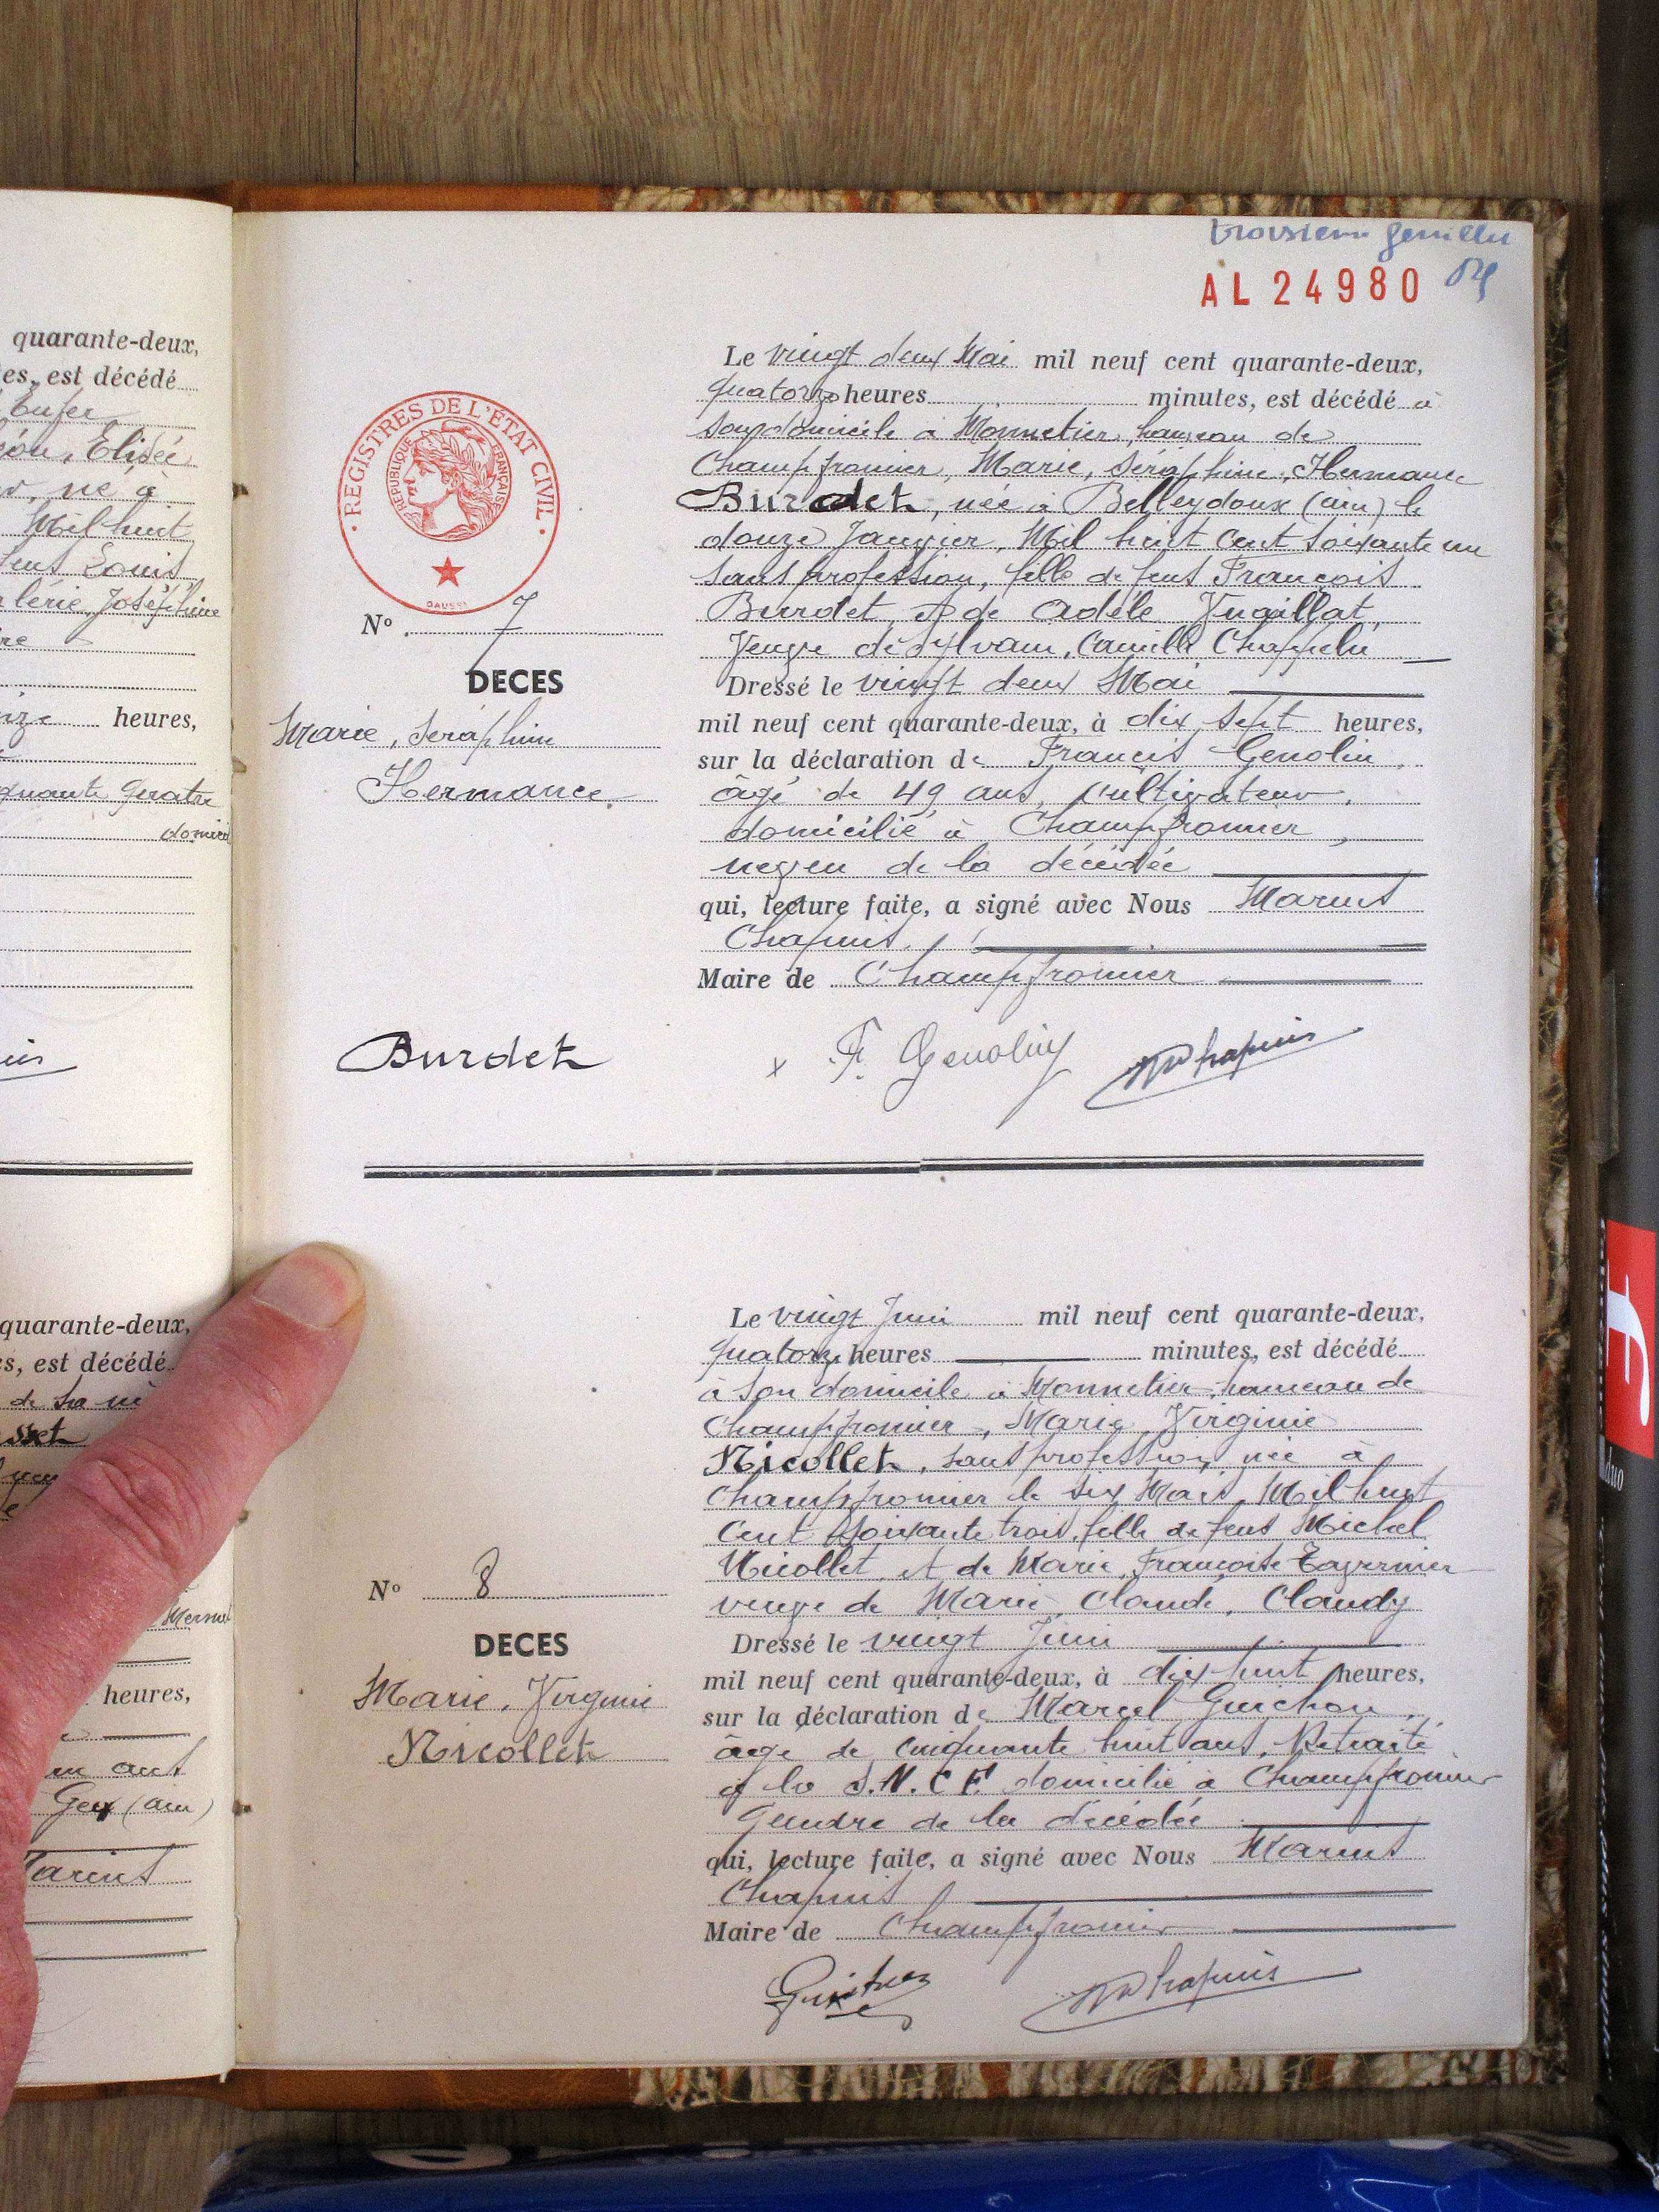 troisième feuillet
AL 24980
quarante-deux,
es, est décédé
Elisée
né à
Mil huit
Louis
Joséphine
heures,
quante quatre
domici
quarante-deux,
s, est décédé
de sa
heures,
ans
Gex (ain)
REGISTRES DE L'ÉTAT CIVIL
RÉPUBLIQUE FRANÇAISE
N° 7
DECES
Marie, Séraphine
Hermance
Burdet
Le vingt deux Mai mil neuf cent quarante-deux,
quatorze heures minutes, est décédé à
son domicile à Monnetier, hameau de
Champfromier, Marie, Séraphine, Hermance
Burdet, née à Belleydoux (ain) le
douze Janvier, Mil huit Cent Soixante un
Sans profession, fille de feus François
Burdet, et de Adèle Vuaillat,
Veuve de Sylvain, Camille Chappelu
Dressé le vingt deux Mai
mil neuf cent quarante-deux, à dix sept heures,
sur la déclaration de Francis Genolin,
âgé de 49 ans, cultivateur,
domicilié à Champfromier,
neveu de la décédée
qui, lecture faite, a signé avec Nous Marius
Chapuis,
Maire de Champfromier
x F. Genolin MChapuis
N° 8
DECES
Marie, Virginie
Nicollet
Le vingt Juin mil neuf cent quarante-deux,
quatorze heures minutes, est décédé
à son domicile à Monnetier, hameau de
Champfromier, Marie Virginie
Nicollet, sans profession, née à
Champfromier le six Mars Mil huit
Cent Soixante trois, fille de feus Michel
Nicollet, et de Marie, Françoise Tavernier
veuve de Marie, Claude, Claudy
Dressé le vingt Juin
mil neuf cent quarante-deux, à dix huit heures,
sur la déclaration de Marcel Guichon,
âge de cinquante huit ans, Retraité
à la S.N.C.F. domicilié à Champfromier
Gendre de la décédée
qui, lecture faite, a signé avec Nous Marius
Chapuis
Maire de Champfromier
MChapuis
duo